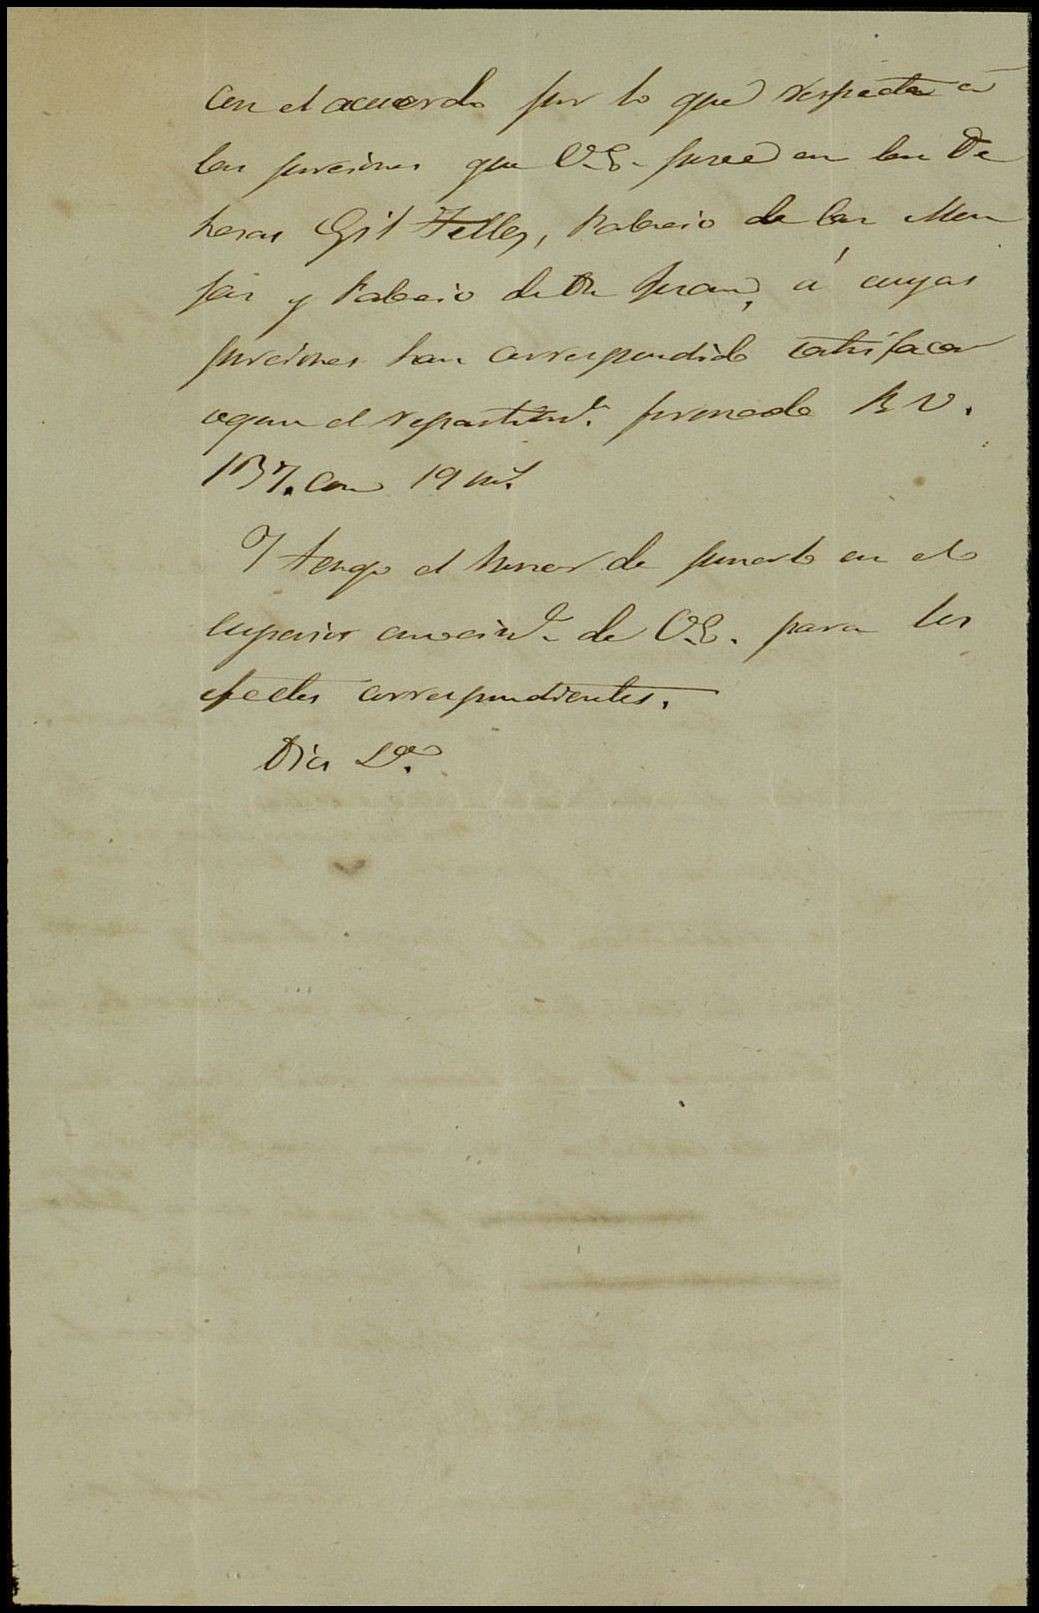 con el acuerdo por lo que respecta á
las porciones que V.E. posee en las De
hesas Gil Tellez, Palacio de las Mon
jas y Palacio de Dn Juan, á cuyas
porciones han correspondido satisfacer
segun el repartimto. formado R V.
137. con 19 ms.
Y tengo el honor de ponerlo en el
superior conocimto. de V.E. para los
efectos correspondientes.
Dios Ge.